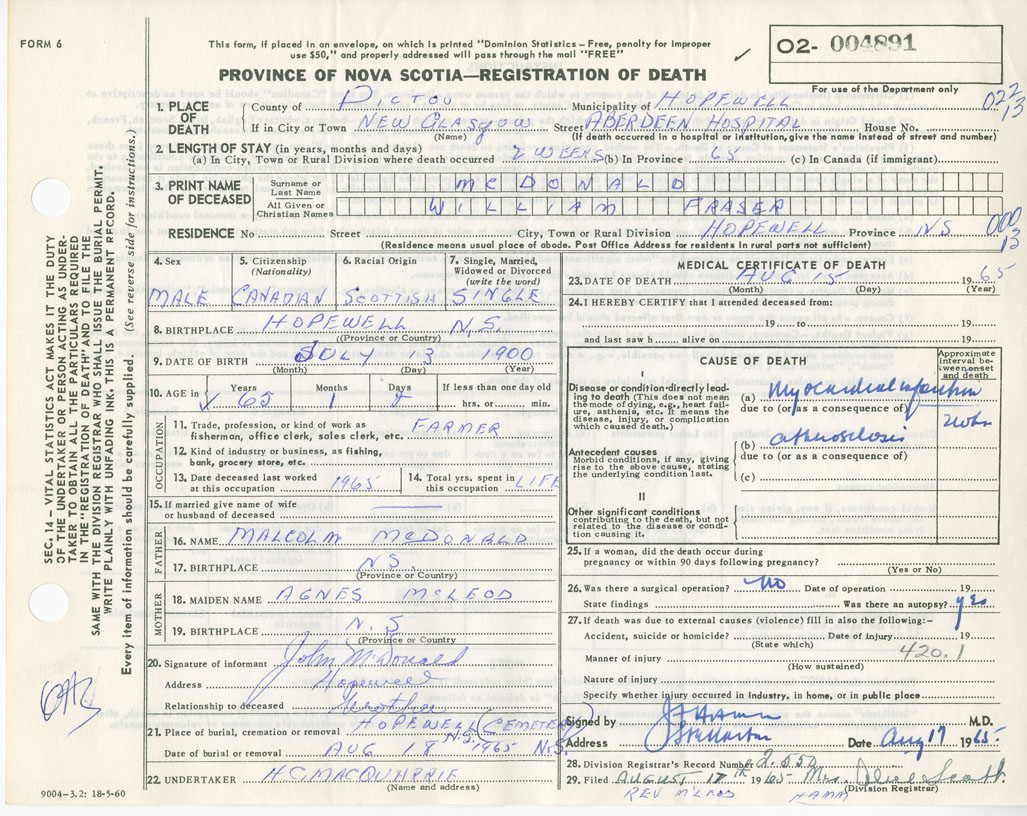 FORM 6
This form, if placed in an envelope, on which is printed "Dominion Statistics – Free, penalty for improper
use $50," and properly addressed will pass through the mail "FREE"
PROVINCE OF NOVA SCOTIA—REGISTRATION OF DEATH
O2- 004891
For use of the Department only
022
13
1. PLACE OF DEATH
County of PICTOU Municipality of HOPEWELL
If in City or Town NEW GLASGOW Street ABERDEEN HOSPITAL House No.
(Name) (If death occurred in hospital or institution, give the name instead of street and number)
2. LENGTH OF STAY (in years, months and days)
(a) In City, Town or Rural Division where death occurred 2 WEEKS (b) In Province 65 (c) In Canada (if immigrant)
3. PRINT NAME OF DECEASED
Surname or Last Name McDONALD
All Given or Christian Names WILLIAM FRASER
000
13
RESIDENCE No Street City, Town or Rural Division HOPEWELL Province NS
(Residence means usual place of abode. Post Office Address for residents in rural parts not sufficient)
4. Sex
MALE
5. Citizenship
(Nationality)
CANADIAN
6. Racial Origin
SCOTTISH
7. Single, Married,
Widowed or Divorced
(write the word)
SINGLE
8. BIRTHPLACE HOPEWELL N.S.
(Province or Country)
9. DATE OF BIRTH JULY 13 1900
(Month) (Day) (Year)
10. AGE in Years Months Days If less than one day old
✓ 65 1 hrs. or min.
OCCUPATION
11. Trade, profession, or kind of work as
fisherman, office clerk, sales clerk, etc. FARMER
12. Kind of industry or business, as fishing,
bank, grocery store, etc.
13. Date deceased last worked
at this occupation 1965
14. Total yrs. spent in
this occupation LIFE
15. If married give name of wife
or husband of deceased
FATHER
16. NAME MALCOLM McDONALD
17. BIRTHPLACE N.S.
(Province or Country)
MOTHER
18. MAIDEN NAME AGNES McLEOD
19. BIRTHPLACE N.S
(Province or Country
20. Signature of informant John McDonald
Address Hopewell
Relationship to deceased Brother
21. Place of burial, cremation or removal HOPEWELL (CEMETERY)
N.S.
Date of burial or removal AUG 18 1965 N.S.
22. UNDERTAKER H.C. MACQUARRIE
(Name and address)
9004-3.2: 18-5-60
MEDICAL CERTIFICATE OF DEATH
23. DATE OF DEATH AUG 15 1965
(Month) (Day) (Year)
24. I HEREBY CERTIFY that I attended deceased from:
19 to 19
and last saw h alive on 19
CAUSE OF DEATH
Approximate
interval be-
tween onset
and death
I
Disease or condition directly lead-
ing to death (This does not mean
the mode of dying, e.g., heart fail-
ure, asthenia, etc. It means the
disease, injury, or complication
which caused death.)
(a) Myocardial infarction
due to (or as a consequence of)
Antecedent causes
Morbid conditions, if any, giving
rise to the above cause, stating
the underlying condition last.
(b)
due to (or as a consequence of)
(c)
II
Other significant conditions
contributing to the death, but not
related to the disease or condi-
tion causing it.
25. If a woman, did the death occur during
pregnancy or within 90 days following pregnancy?
(Yes or No)
26. Was there a surgical operation? No Date of operation 19
State findings Was there an autopsy? yes
27. If death was due to external causes (violence) fill in also the following:–
Accident, suicide or homicide? Date of injury 19
(State which)
420.1
Manner of injury
(How sustained)
Nature of injury
Specify whether injury occurred in industry, in home, or in public place
Signed by M.D.
Address Date Aug 17 1965
28. Division Registrar's Record Number 2,552
29. Filed AUGUST 17th 1965 Mrs. Scott
(Division Registrar)
REV McLEOD HAMM
SEC. 14 – VITAL STATISTICS ACT MAKES IT THE DUTY
OF THE UNDERTAKER OR PERSON ACTING AS UNDER-
TAKER TO OBTAIN ALL THE PARTICULARS REQUIRED
IN THE "REGISTRATION OF DEATH" AND TO FILE THE
SAME WITH THE DIVISION REGISTRAR WHO SHALL ISSUE THE BURIAL PERMIT.
WRITE PLAINLY WITH UNFADING INK–THIS IS A PERMANENT RECORD.
Every item of information should be carefully supplied. (See reverse side for instructions.)